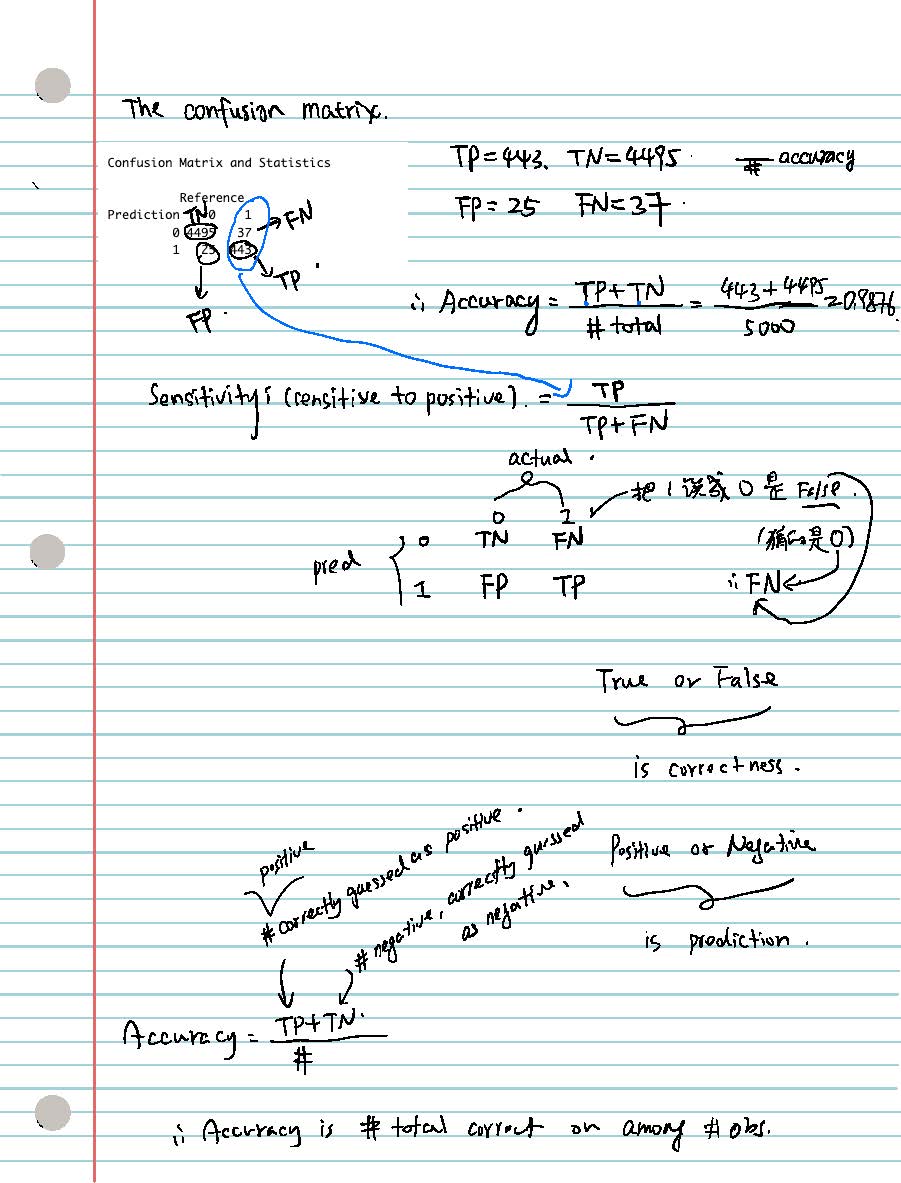 The confusion matrix.
Confusion Matrix and Statistics
Reference
Prediction 0 1
0 4495 37
1 25 443
TN
FN
TP
FP
TP=443. TN=4495
# accuracy
FP=25 FN=37
∴ Accuracy = TP+TN / # total = 443+4495 / 5000 = 0.9876
Sensitivity: (sensitive to positive). = TP / TP+FN
actual
0 1
0 TN FN
pred
1 FP TP
把 1 误成 0 是 False.
(猜的是0)
∴ FN
True or False
is correctness.
Positive or Negative
is prediction.
positive
# correctly guessed as positive.
# negative, correctly guessed
as negative.
Accuracy = TP+TN / #
∴ Accuracy is # total correct on among # obs.